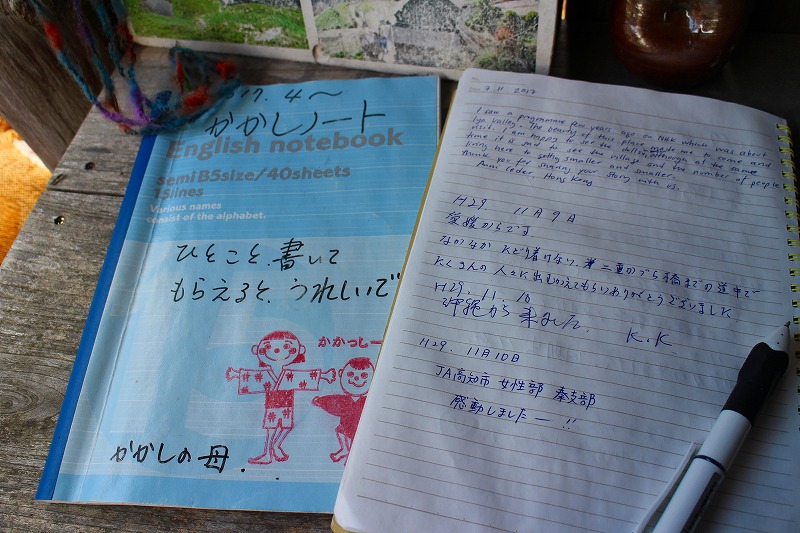 17. 4～
かかしノート
English notebook
semi B5 size/40sheets
15lines
Various names
consist of the alphabet.
ひとこと、書いて
もらえると、うれしいで
かかっしー
かかしの母.
7. 11 2017
I saw a programme few years ago on NHK which was about
Iya Valley. The beauty of this place made me to come and
visit. I am happy to see the dolls, although at the same
time it is sad to see the village and the number of people
living here is getting smaller and smaller.
Thank you for sharing your story with us.
Hong Kong
H29 11月9日
愛媛からです
なかなか たどり着けない、第二重のづら橋までの道中で
たくさんの人々に出むかえてもらいありがとうございました
H29. 11. 10
沖縄から来ました. K.K
H29. 11月10日
JA高知市 女性部 秦支部
感動しましたー!!